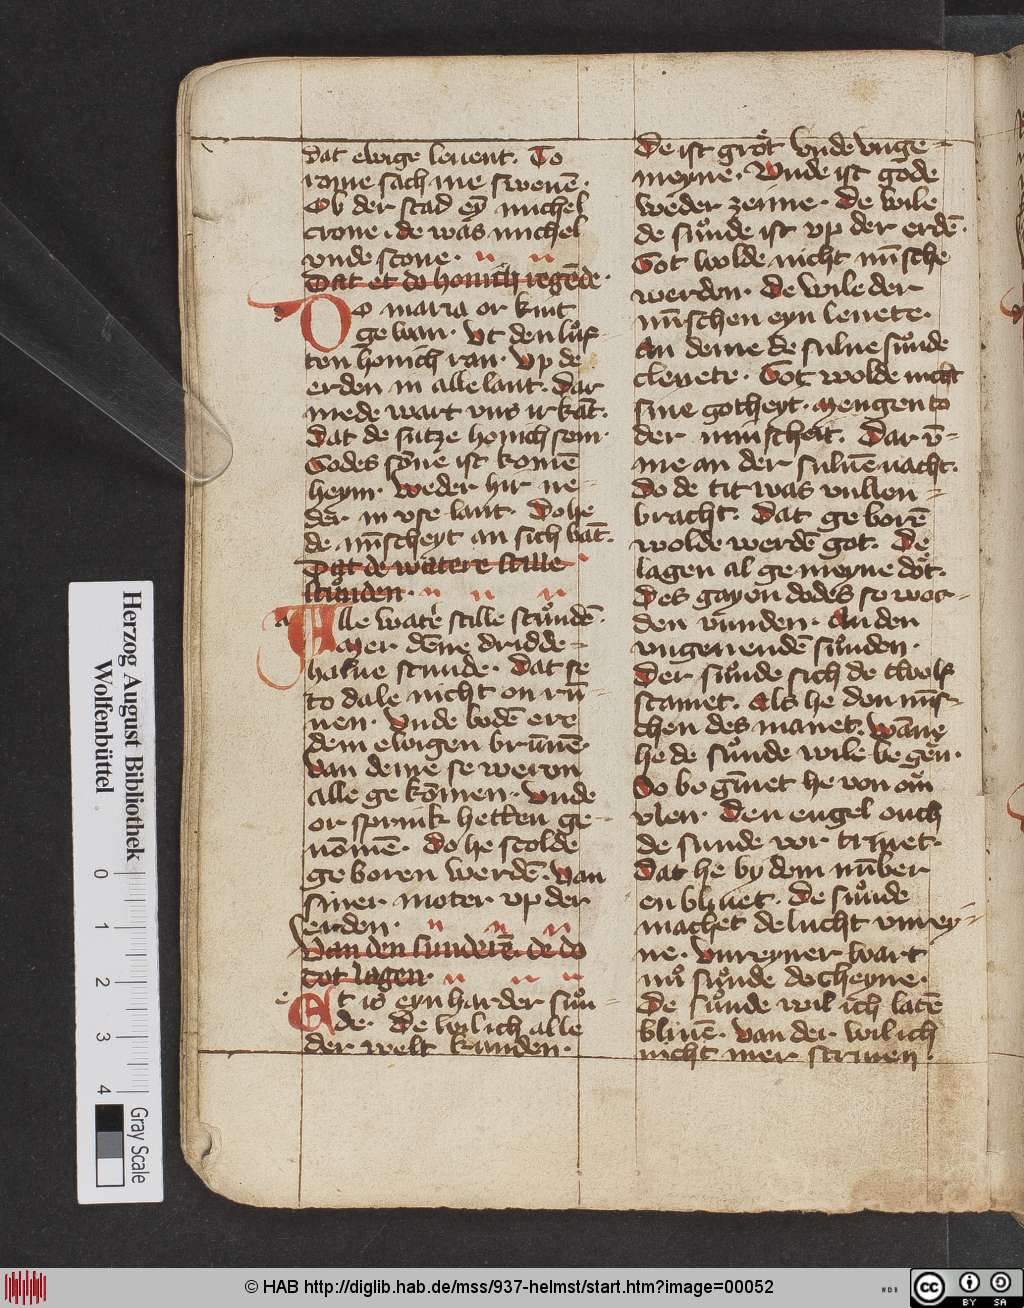 dat ewige leuent. To
rome sach me sweuē.
Ob der stad eȳ michel
crone. de was michel
vnde scone.
Dat et do honich regēde.
Do maria or kint
ge wan. Vt den lůf-
ten honich ran. Vp de
erden in alle lant. Dar
mede wart vns irkāt.
Dat de sutze honich sem.
Godes sōne ist komē
heym. Weder hir ne-
der. in vse lant. Do he
de mīscheyt an sich bāt.
Dat de watere stille
stůnden.
Alle watere stille stůndē.
Mer dēne dridde-
halue stunde. Dat se
to dale nicht on rū-
nen. Vnde bodē ere
dem ewigen brūnē.
Van deme se weren
alle ge kōmen. Vnde
or sprink hetten ge-
nōmē. do he scolde
ge boren werdē. van
siner moter vp der
erden.
Van den sunderē. de do
dot lagen.
Et is eyn harder sůn-
de. De wil ich alle
der welt kunden.
De ist grôt vnde vnge-
meyne. Vnde ist gode
weder zeme. De wile
de sůnde ist vp der erdē.
Got wolde nicht mīsche
werden. De wile der
mīschen eyn leuete.
An deme de sulue sůnde
cleuete. Got wolde nicht
sine gotheyt. Mengen to
der minscheit. Dar v̄-
me an der suluē nacht.
do de tit was vullen-
bracht. Dat ge borē
wolde werdē got. De
lagen al ge meyne dôt.
Des gayen dodes so wor-
den vunden. An den
vngenendē sůnden.
Der sůnde sich de wolf
scamet. Als he den mīs-
chen des manet. Wāne
he de sůnde wile be gēn.
So be gīnet he von om
vlen. Den engel ouch
de sunde vor triuet.
Dat he by dem mīber
en bliuet. De sůnde
machet de lucht vnrey-
ne. Vnreyner wart
nů sůnde docheyne.
De sůnde wil ich latē
bliuē. Van der wil ich
nicht mer scriuen.
Herzog August Bibliothek
Wolfenbüttel
0 1 2 3 4
Gray Scale
© HAB http://diglib.hab.de/mss/937-helmst/start.htm?image=00052
WDB
cc BY SA